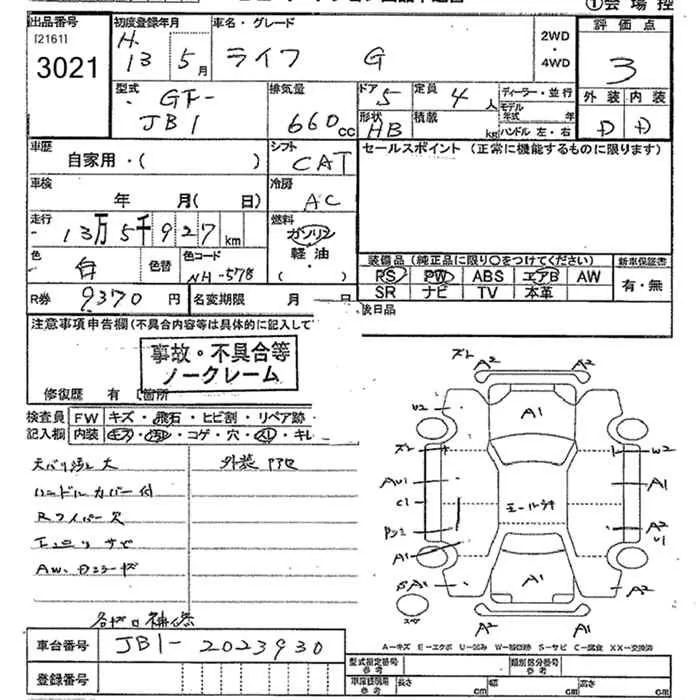 ①会場控
出品番号 初度登録年月 車名・グレード 評価点
[2161] H.
3021 13 5月 ライフ G 2WD・4WD 3
型式 排気量 ドア 定員 ディーラー・並行 外装 内装
GF-JB1 660cc 5 4人 モデル年式 年 D D
形状 HB 積載 kg ハンドル 左・右
車歴 自家用・( ) シフト CAT セールスポイント (正常に機能するものに限ります)
車検 年 月( 日) 冷房 AC
走行 13万5千927km 燃料 ガソリン
軽油・( )
色 白 色替 色コード NH-578
装備品 (純正品に限り○をつけてください) 新車保証書
PS PW ABS エアB AW 有・無
SR ナビ TV 本革
R券 9370円 名変期限 月 日 後日品
注意事項申告欄(不具合内容等は具体的に記入して
事故・不具合等
ノークレーム
修復歴 有 箇所
検査員 FW キズ・飛石・ヒビ割・リペア跡・
記入欄 内装 キズ・汚レ・コゲ・穴・スレ・キレ
天バリ汚レ大
ハンドルカバー付
Rワイパー欠
エンジンサビ
A2 A2
U2 A1
W2
AW1 A1
C1
A2
U1
A1
A1 A2
A2 A1 A2
スペ
A-キズ E-エクボ U-凹み W-補修跡 S-サビ C-腐食 XX-交換済
車台番号 JB1-2023930
登録番号
型式指定番号 参考 類別区分番号 参考
長さ cm 幅 cm 高さ cm